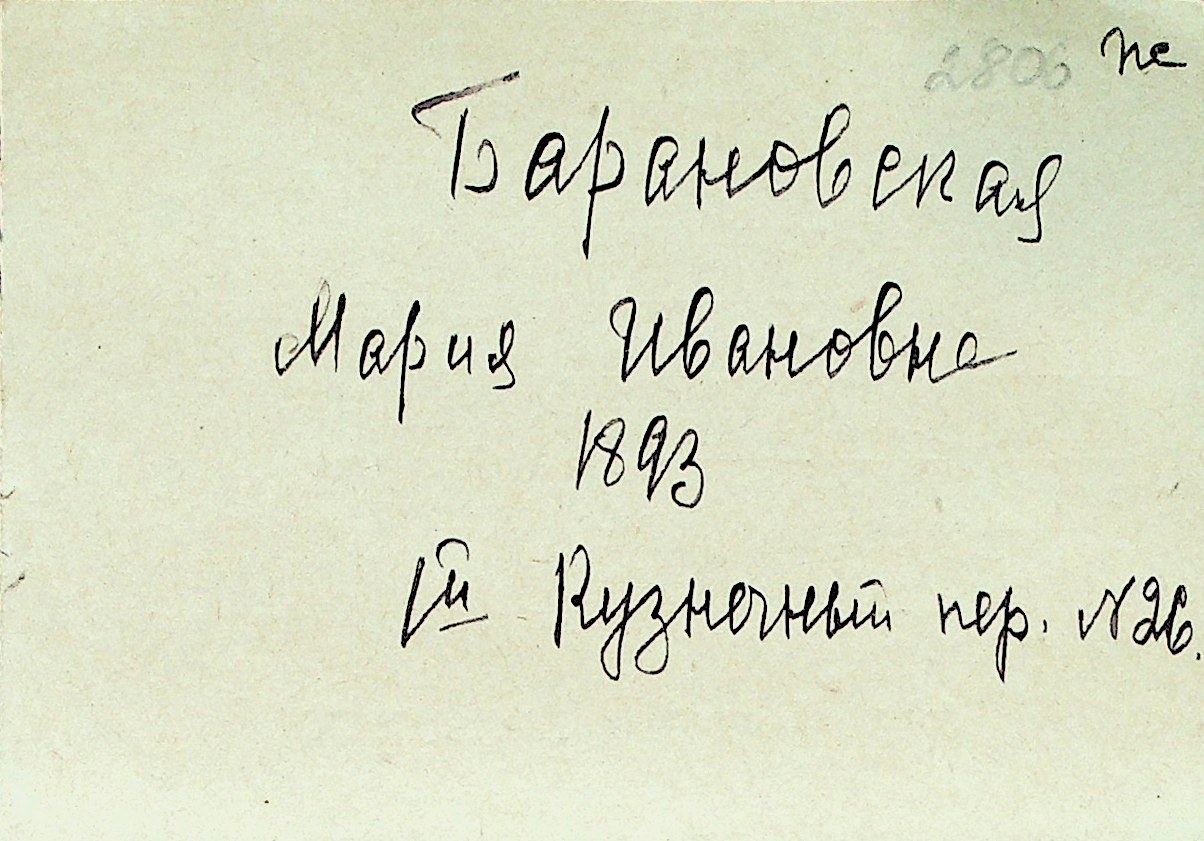 2806 пе
Барановская
Мария Ивановна
1893
1й Кузнечный пер. №26.